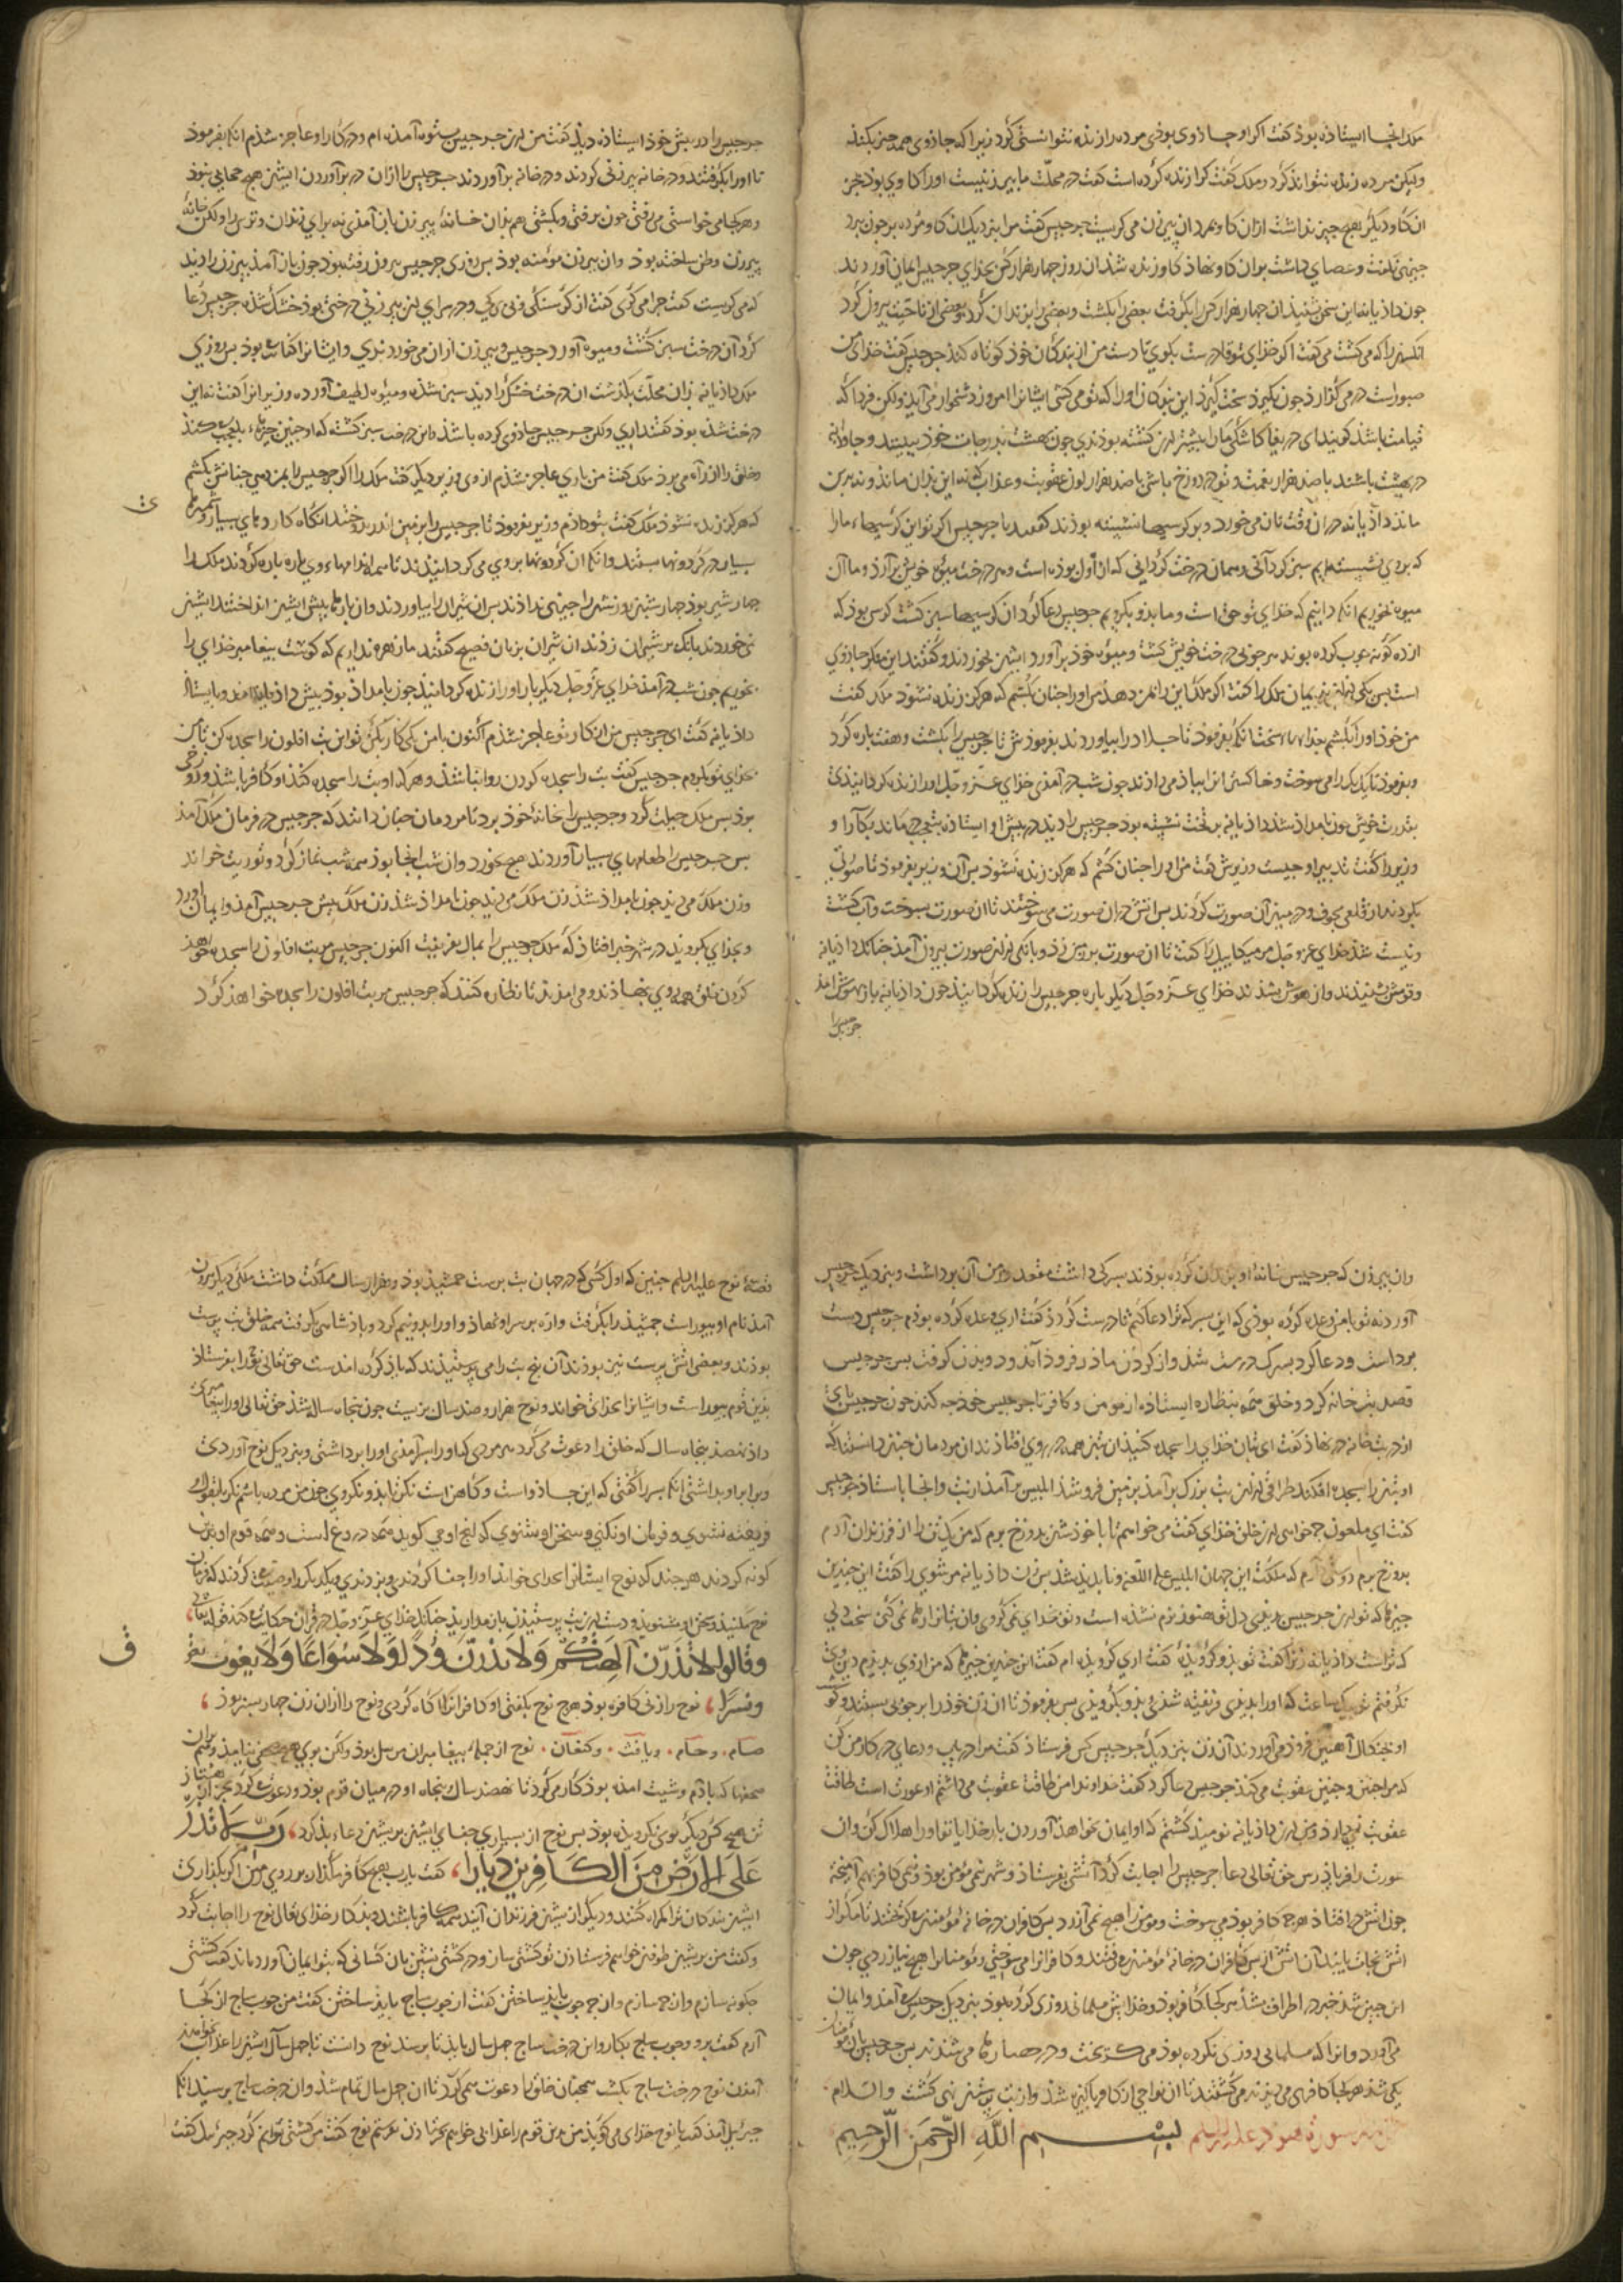 ملک انجا ایستاذه بوذ کفت اکر او جاذوی بوذی مرده را زنده نتوانستی کرد زیرا که جاذوی همه جیز بکند
ولیکن مرده زنده نتواند کرد ملک کفت کرا زنده کرده است کفت در محلّت ما بیر زنیست او را کاوی بود بجز
ان کاو دیکر هیچ جیز نداشت ازان کاو بمرد ان بیر زن می کریست جرجیس کفت مرا بنزدیک ان کاو مرده بر جون ببرد
وعصای داشت بران کاو نهاذ کاو زنده شذ ان روز جهار هزار کس بخدای جرجیس ایمان آوردند
جون داذیانه این سخن بشنید ان جهار هزار کس را بکرفت بعضی را بکشت وبعضی را بزندان کرد وبعضی از ناحیت بیرون کرد
انکس را که می کشت می کفت اکر خذای تو قادرست بکوی تا دست من از بندکان خوذ کوتاه کند جرجیس کفت خذای من
صبورست در می کذارد جون بکیرد سخت کیرد این بندکان او را که تو می کشی ایشانرا امروز دشخوار می آید ولکن فردا که
قیامت باشد کویند ای دریغا کاشکی ما را بیشتر ازین کشته بوذندی جون بهشت بدرجات خوذ ببینند وجاودانه
در بهشت باشند با صد هزار نعمت وتو در دوزخ باشی با صد هزار لون عقوبت وعذاب که نه این بدان ماند ونه بدین
ماند داذیانه در ان وقت نان می خورد وبر کرسیها نشسته بوذند کفتند یا جرجیس اکر تو این کرسیهاء ما را
که بروی نشسته ایم سبز کردانی وهمان درخت کردانی که از اول بوذه است وهر درخت میوه خویش برآرد وما از ان
میوه بخوریم انکه دانیم که خذای تو حق است وما بدو بکرویم جرجیس دعا کرد ان کرسیها سبز کشت کرسی بوذ که
از ده کونه جوب کرده بوند هر جوبی درخت خویش کشت ومیوه خوذ برآورد ایشان بخوردند وکفتند این مکر جاذوی
است بس یکی ازین ندیمان ملک را کفت اکر ملک این را بمن دهد من او را جنان بکشم که هرکز زنده نشوذ ملک کفت
من خوذ او را بکشم بعذابهاء سخت انکه بفرموذ تا جلاد را بیاوردند بفرموذش تا جرجیس را بکشت وهفت باره کرد
وبفرموذ تا یک یک را می سوخت وخاکستر انرا بباذ می داذند جون شب درآمذ خذای عزّ وجل او را زنده کردانید
بقدرت خویش جون بامداذ شذ داذیانه بر تخت نشسته بوذ جرجیس را دید در بیش او ایستاذه
وزیر را کفت تدبیر او جیست وزیرش کفت من او را جنان کشم که هرکز زنده نشوذ بس آن وزیر بفرموذ تا صورتی
بکردند از قلعی مجوف ودر میان آن صورت کردند بس اتش در ان صورت می سوختند تا ان صورت بسوخت وآب کشت
ونیست شذ خذای عزوجل مر میکاییل را کفت تا ان صورت بر زمین زد وبانکی ازین صورت بیرون آمذ جنانکه داذیانه
وقومش بشنیدند واز هوش بشدند خذای عزّ وجل دیکر باره جرجیس را زنده کردانید جون داذیانه باز بهوش آمذ
جرجیس را
جرجیس را در بیش خوذ ایستاذه دید کفت من ازین جرجیس بستوه آمذه ام ودر کار او عاجز شذم انکه بفرموذ
تا او را بکرفتند ودر خانه بیر زنی کردند ودر خانه برآوردند جرجیس را ازان در برآوردن ایشان هیچ حجابی نبوذ
وهر کجا می خواستی می رفتی جون برفتی وبکشتی هم بدان خانهٔ بیر زن باز آمذی نه برای زندان وترس را ولکن خانهٔ
بیر زن وطن ساخته بوذ وان بیر زن مومنه بوذ بس روزی جرجیس بیرون رفته بوذ جون باز آمذ بیر زن را دید
که می کریست کفت جرا می کریی کفت از کرسنکی ودر سرای این بیر زن درختی بوذ خشک شذه جرجیس دعا
کرد آن درخت سبز کشت ومیوه آورد جرجیس وبیر زن ازان می خوردندی وایشانرا کفایت بوذ بس روزی
ملک داذیانه بران محلّت بکذشت ان درخت خشک را دید سبز شذه ومیوه لطیف آورده وزیرانرا کفت نه این
درخت شذه بوذ کفتند اری ولکن جرجیس جاذوی کرده باشذ واین درخت سبز کشته که او جنین جیزهاء بلعجب کند
وخلق را از راه می برد ملک کفت من باری عاجز شذم از وی وزیر دیکر کفت ملک را اکر جرجیس را بمن دهی جنانش بکشم
که هرکز زنده نشوذ ملک کفت بتو داذم وزیر بفرموذ تا جرجیس را بزمین اندر بدوختند انکاه کاردهای بسیار
بسیار در کردونها ببستند وانکه ان کردونها بر وی می کردانیدند تا همه اندامهاء وی باره باره کردند ملک را
جهار شیر بوذ جهار شبانروز شیر را جیزی نداذند بس ان شیران را بیاوردند وان بارها بیش ایشان انداختند ایشان
نمی خوردند بانک بر شیران زدند ان شیران بزبان فصیح کفتند ما زهره نداریم که کوشت بیغامبر خذای را
بخوریم جون شب درآمذ خذای عزّ وجل دیکر بار او را زنده کردانید جون بامداذ بوذ بیش داذیانه آمذ وبایستاذ
داذیانه کفت ای جرجیس من از کار تو عاجز شذم اکنون با من یکی کار بکن تو این بت افلون را سجده کن تا من
بخدای تو بکروم جرجیس کفت بت را سجده کردن روا نباشذ وهر که او بت را سجده کند او کافر باشذ
بوذ بس ملک حیلت کرد وجرجیس را بخانهٔ خوذ برد تا مردمان جنان دانند که جرجیس در فرمان ملک آمذ
بس جرجیس را طعامهای بسیار آوردند هیچ نخورد وان شب انجا بوذ همه شب نماز کرد وتوریت خواند
وزن ملک می دید جون بامداذ شذ زن ملک بیش جرجیس آمذ وایمان آورد
وبخدای بکروید در شهر خبر افتاذ که ملک جرجیس را بمال بفریفت اکنون جرجیس مر بت افلون را سجده خواهذ
کردن خلق همه روی بنهاذند ومی آمذند تا نظاره کنند که جرجیس مر بت افلون را سجده خواهذ کرد
وان بیر زن که جرجیس بخانهٔ او بزندان کرده بوذند بسرکی داشت مقعد وزمن آن برداشت وبنزدیک جرجیس
آورد نه تو با من وعده کرده بوذی که این بسرک ترا دعا کنم تا درست کردذ کفت اری وعده کرده بوذم جرجیس دست
برداشت ودعا کرد بسرک درست شذ واز کردن ماذر فروذ آمذ ودویدن کرفت بس جرجیس
قصد بتخانه کرد وخلق همه بنظاره ایستاذه از مومن وکافر تا جرجیس خوذ جه کند جون جرجیس بای
از در بتخانه در نهاذ کفت ای بتان خذای را سجده کنید ان بتان همه در روی افتاذند ان مردمان جنین دانستند که
او بتان را سجده افکند طراقی ازین بت بزرک برآمذ بزمین فرو شذ ابلیس برآمذ ازان بت وانجا باستاذ جرجیس
کفت ای ملعون جه خواهی ازین خلق خذای کفت می خواهم تا با خوذشان بدوزخ برم که من یک تن را از فرزندان آدم
بدوزخ برم دوستر دارم که ملکت این جهان ابلیس علیه اللعنه ونابدید شذ بس زن داذیانه مر شوی را کفت این جندین
جیزها که تو ازین جرجیس دیدی دل تو هنوز نرم نشذه است وتو بخدای نمی کروی وان بتانرا رها نمی کنی سخت دلی
که تراست داذیانه زنرا کفت تو بدو کرویذهٔ کفت اری کرویذه ام کفت این جندین جیزها که من از وی بدیدم دین وی
نکرفتم تو بیک ساعت که او را بدیدی فریفته شذی وبدو بکرویدی بس بفرموذ تا ان زن خوذ را بر جوبی ببستند و
اویختند آهنین فروذ می آوردند آن زن بنزدیک جرجیس کس فرستاذ کفت مرا دریاب ودعای در کار من کن
که مرا جنین وجنین عقوبت می کنند جرجیس دعا کرد کفت خداوندا من طاقت عقوبت می داشتم او عورت است طاقت
عقوبت نمی دارد ومن ازین داذیانه نومید کشتم که او ایمان نخواهد آوردن بار خذایا تو او را هلاک کن وان
عورت را فریاذ رس حق تعالی دعاء جرجیس را اجابت کرد آتشی بفرستاذ وشهر نیمی مؤمن بوذ ونیمی کافر بهم آمیخته
جون اتش در افتاذ هر جه کافر بوذ می سوخت ومومن را هیچ نمی آزرد بس کافران در خانهٔ مؤمنان می کریختند تا مکر از
اتش نجات یابند آن اتش از بس کافران در خانهٔ مؤمنان می رفتند وکافرانرا می سوختی ومؤمنانرا هیچ نیازردی جون
این جنین شذ خبر در اطراف شذ هر کجا که کافر بوذ وخذایش مسلمانی روزی کرده بوذ بنزدیک جرجیس می آمذ وایمان
می آورد وانرا که مسلمانی روزی نکرده بوذ می کریخت ودر حصارها می شدند بس جرجیس با مؤمنان
یکی شذ هر کجا کافری می دیدند می کشتند تا ان نواحی از کافر باکیزه شذ وازان بت برستان تهی کشت والسلام
سورة هود علیه السلم بســـم الله الرّحمن الرّحیم
قصهٔ نوح علیه السلم جنین که اول کسی که در جهان بت برست جمشید بوذ وهزار سال مملکت داشت ملکی دیکر بیرون
آمذ نام او بیوراست جمشید را بکرفت وارّه بر سر او نهاذ واو را بدو نیم کرد وباذشاهی بکرفت همه خلق بت برست
بوذند وبعضی اتش برست نیز بوذند آن بنج بت را می برستیدند که یاذ کرده امدست حق تعالی نوح را بفرستاذ
بدین قوم بیوراست وایشانرا بخذای خواند ونوح هزار وصد سال بزیست جون بنجاه ساله شذ حق تعالی او را بیغامبری
داذ نهصد بنجاه سال که خلق را دعوت می کرد هر مردی که او را بسر آمذی او را برداشتی وبنزدیک نوح آوردی
وبرابر او بداشتی انکه بسر را کفتی که این جاذواست وکاهن است نکر تا بدو نکروی جون من مرده باشم نکر تا بقول وی
فریفته نشوی وفرمان او نکنی وسخن او نشنوی که انج او می کوید همه دروغ است وهمه قوم او برین
کونه کردند هر جند که نوح ایشانرا بخدای خواند او را جفا کردندی وبزدندی ویکدیکر را وصیت کردند که فرمان
نوح مکنید وسخن او مشنوید ودست ازین بت برستیدن باز مدارید جنانکه خذای عزّ وجل در قرآن حکایت کند قوله تعالی
وقالوا لا تذرنّ آلهتکم ولا تذرنّ ودًّا ولا سُواعًا ولا یغوث ویعوق
ونسرًا، نوح را زنی کافره بوذ هرج نوح بکفتی او کافرانرا اکاه کردی ونوح را ازان زن جهار بسر بوذ،
سام، وحام، ویافث، وکنعان، نوح از جمله بیغامبران مرسل بوذ ولکن بوی هیچ صحفی نیامذ وبران
صحفها که بآدم وشیث امذه بوذ کار می کرد تا نهصد سال وبنجاه او در میان قوم بوذ ودعوت می کرد بجز از هشتاذ
تن هیچ کس دیکر بوی نکرویذه بوذ بس نوح از بسیاری جفای ایشان بریشان دعاء بد کرد، ربّ لا تذر
علی الارض من الکافرین دیّارا، کفت یا رب هیچ کافر مکذار بر روی زمین اکر بکذاری
ایشان بندکان ترا کمراه کنند ودیکر از بشت فرزندان آیند همه کافر باشند وبدکار خذای تعالی نوح را اجابت کرد
وکفت من بریشان طوفان خواهم فرستاذن تو کشتی ساز ودر کشتی نشین با ان کسانی که بتو ایمان آورده اند کفت کشتی
جکونه سازم وان جه سازم واز جه جوب باید ساختن کفت از جوب ساج باید ساختن کفت من جوب ساج از کجا
آرم کفت برو وجوب ساج بکار وان درخت ساج جهل سال باید تا برسد نوح دانست تا جهل سال ایشان را عذاب نخواهد
آمذن نوح درخت ساج بکشت همجنان خلق را دعوت همی کرد تا ان جهل سال تمام شذ وان درخت ساج برسید انکه
جبرئیل آمذ کفت یا نوح خذای می کوید من مرین قوم را عذاب خواهم فرستاذن نوح کفت من کشتی نتوانم کرد جبرئیل کفت